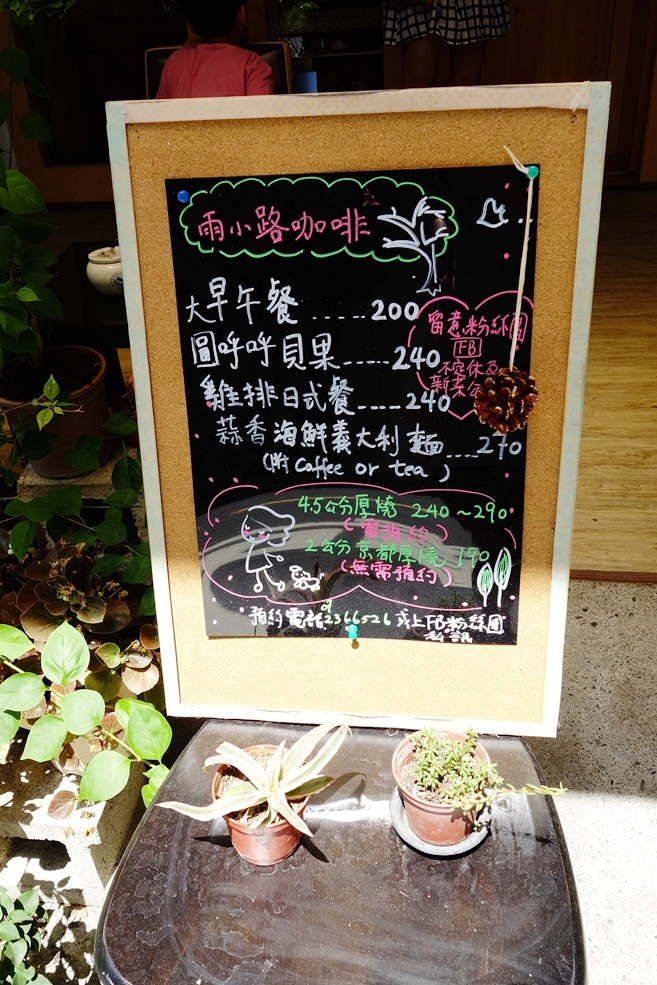 雨小路咖啡
大早午餐.....200
圓呼呼貝果.....240
雞排日式餐....240
蒜香海鮮義大利麵....270
(附 Coffee or tea)
留意粉絲團
FB
不定休及
新菜
4.5公分厚燒 240～290
(需預約)
2公分京都厚燒 190
(無需預約)
預約電話 2366526 或上FB粉絲團
私訊